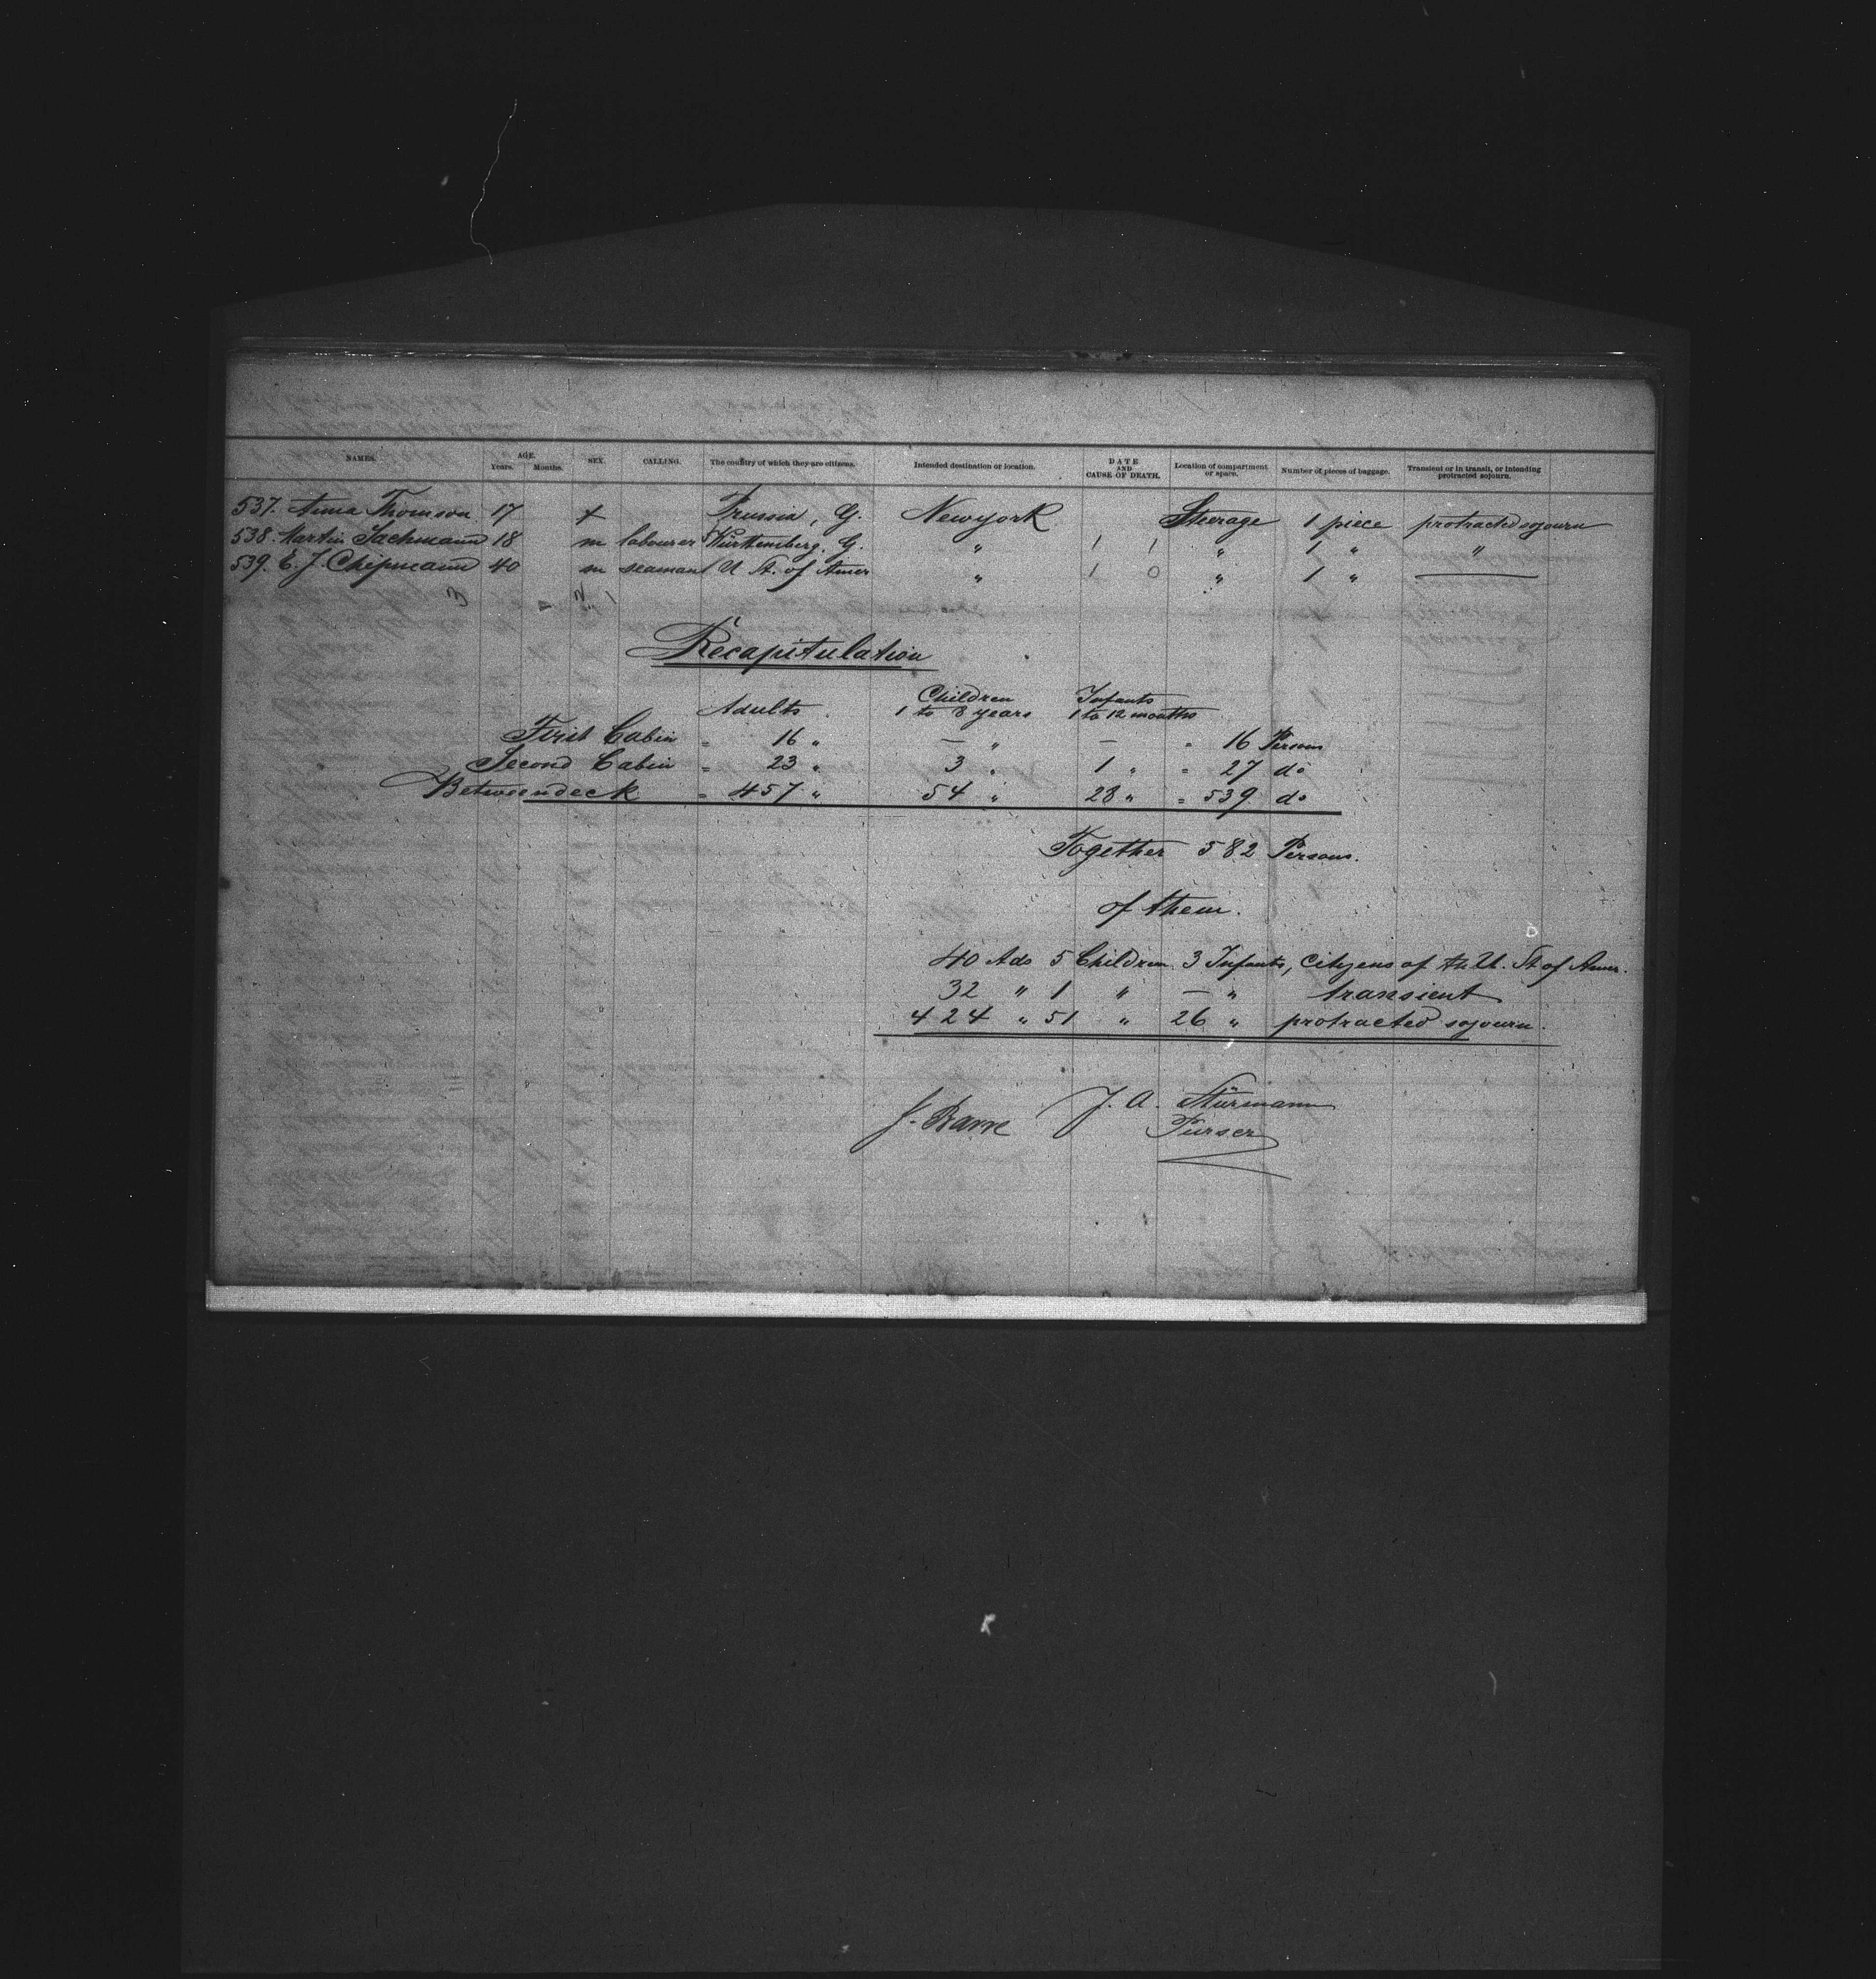 NAMES. AGE. Years. Months. SEX. CALLING. The country of which they are citizens. Intended destination or location. DATE AND CAUSE OF DEATH. Location of compartment or space. Number of pieces of baggage. Transient or in transit, or intending protracted sojourn.
537. Anna Thomson 17 f Prussia, G. Newyork Steerage 1 piece protracted sojourn
538. Martin Sachmann 18 m labourer Württemberg. G. " 1 1 " 1 " "
539. E. J. Chipmann 40 m seaman U St. of Amer " 1 0 " 1 "
3
Recapitulation
Adults Children 1 to 8 years Infants 1 to 12 months
First Cabin = 16 " — " — = 16 Persons
Second Cabin = 23 " 3 " 1 " = 27 do
Betweendeck = 457 " 54 " 28 " = 539 do
Together 582 Persons.
of them.
40 Ads 5 Children 3 Infants, Citizens of the U. St of Amer.
32 " 1 " — " transient
424 " 51 " 26 " protracted sojourn.
J. A. Stürmann
Purser